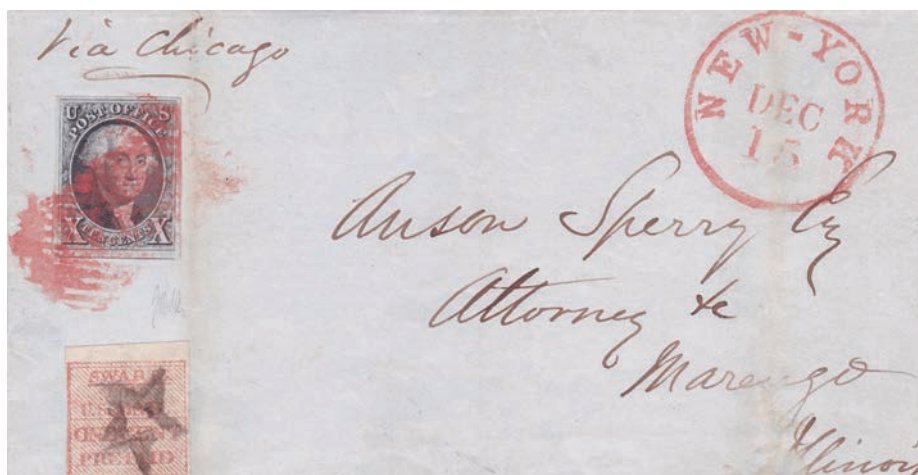 Via Chicago
NEW-YORK
DEC
15
U S
POST OFFICE
X TEN CENTS X
Anson Sperry Esq
Attorney &c
Marengo
Illinois
PREPAID